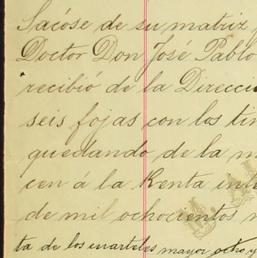 Sacóse de su matriz
Doctor Don José Pablo
recibió de la Direcci
seis fojas con los tim
quedando de la m
cen á la Renta int
de mil ochocientos n
ta de los cuarteles mayor ocho y